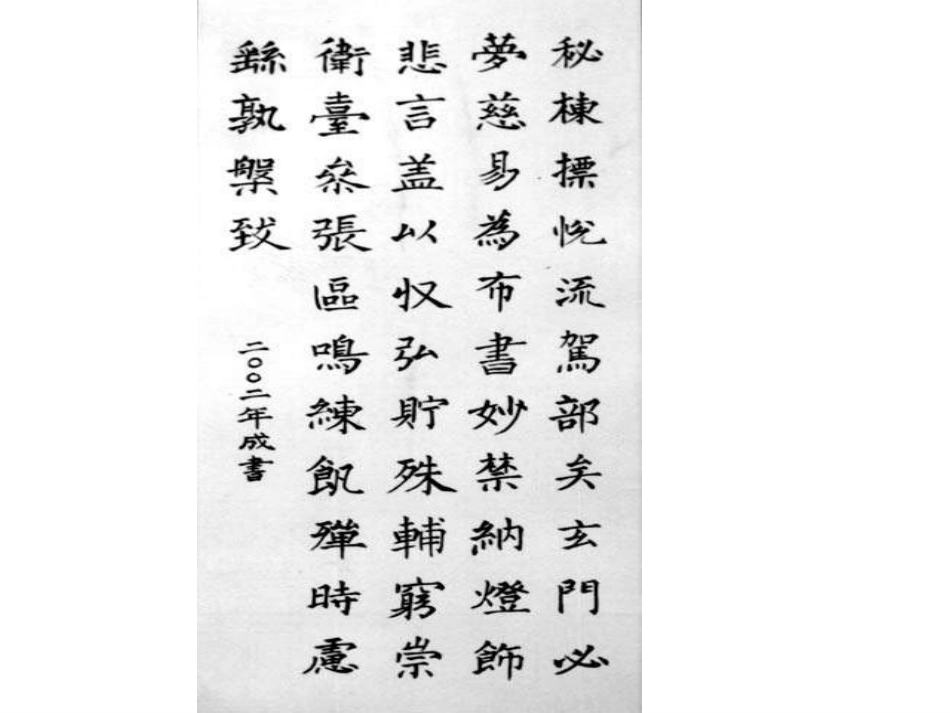 秘棟摽悦流駕部矣玄門必
夢慈易為布書妙禁納燈飾
悲言盖以収弘貯殊輔窮崇
衛臺叅張區鳴練飢殫時慮
繇孰槃致
二〇〇二年成書